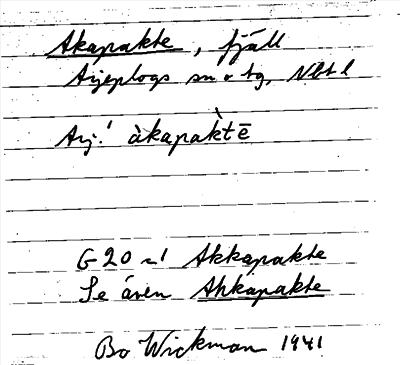 Akapakte, fjäll
Arjeplogs sn o tg, Nbtl
Arj.! àkapàktē
G 20 nl Akkapakte
Se även Ahkápakte
Bo Wickman 1941